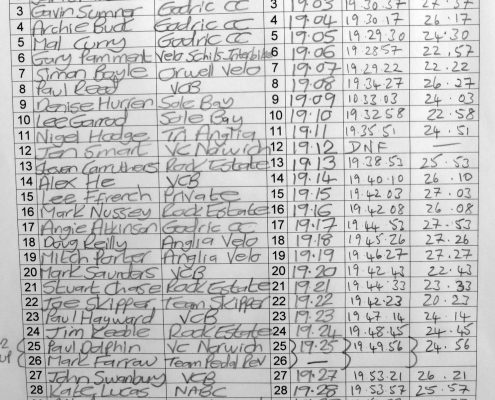 3 Gavin Sumner Godric CC 3 19.03 19.30.37 27.37
4 Archie Buat Godric CC 4 19.04 19.30.17 26.17
5 Mal Curry Godric CC 5 19.05 19.29.30 24.30
6 Gary Pamment Velo Schils Interbike 6 19.06 19.28.57 22.57
7 Simon Bayle Orwell Velo 7 19.07 19.29.22 22.22
8 Paul Reed VCB 8 19.08 19.34.27 26.27
9 Denise Hurren Sole Bay 9 19.09 10.33.03 24.03
10 Lee Garrod Sole Bay 10 19.10 19.32.58 22.58
11 Nigel Hodge Tri Anglia 11 19.11 19.35.51 24.51
12 Jen Smart VC Norwich 12 19.12 DNF —
13 Carruthers Rock Estate 13 19.13 19.38.53 25.53
14 Alex He VCB 14 19.14 19.40.10 26.10
15 Lee Ffrench Private 15 19.15 19.42.03 27.03
16 Mark Nussey Rock Estate 16 19.16 19.42.08 26.08
17 Angie Atkinson Godric CC 17 19.17 19.44.53 27.53
18 Doug Reilly Anglia Velo 18 19.18 19.45.26 27.26
19 Mitch Porter Anglia Velo 19 19.19 19.46.27 27.27
20 Mark Saunders VCB 20 19.20 19.42.43 22.43
21 Stuart Chase Rock Estate 21 19.21 19.44.33 23.33
22 Joe Skipper Team Skipper 22 19.22 19.42.23 20.23
23 Paul Hayward VCB 23 19.23 19.47.14 24.14
24 Jim Keeble Rock Estate 24 19.24 19.48.45 24.45
25 Paul Dolphin VC Norwich 25 19.25 19.49.56 24.56
26 Mark Farrow Team Pedal Rev 26 —
27 John Swanbury VCB 27 19.27 19.53.21 26.21
28 Kate Lucas NABC 28 19.28 19.53.57 25.57